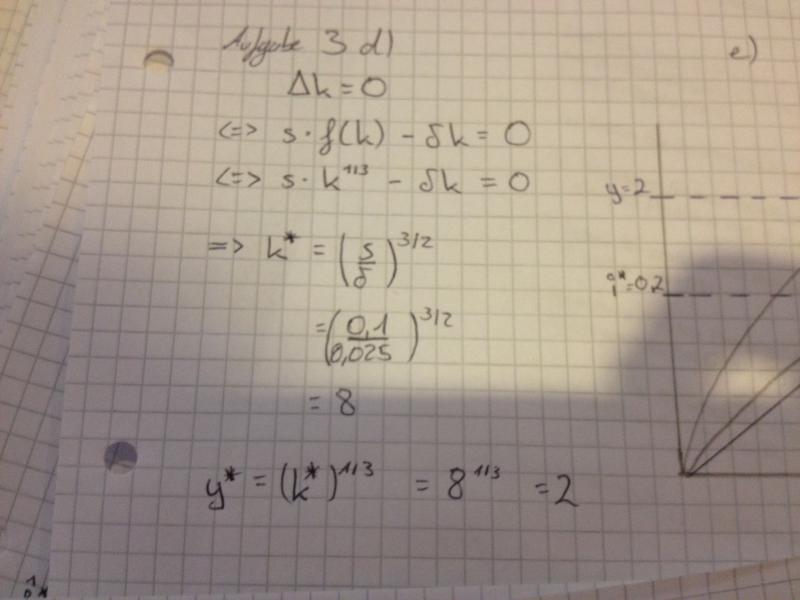 Aufgabe 3 d)
Δk = 0
<=> s · f(k) - δk = 0
<=> s · k^1/3 - δk = 0
=> k* = (s/δ)^3/2
= (0,1/0,025)^3/2
= 8
y* = (k*)^1/3 = 8^1/3 = 2
e)
y=2
i*=0,2